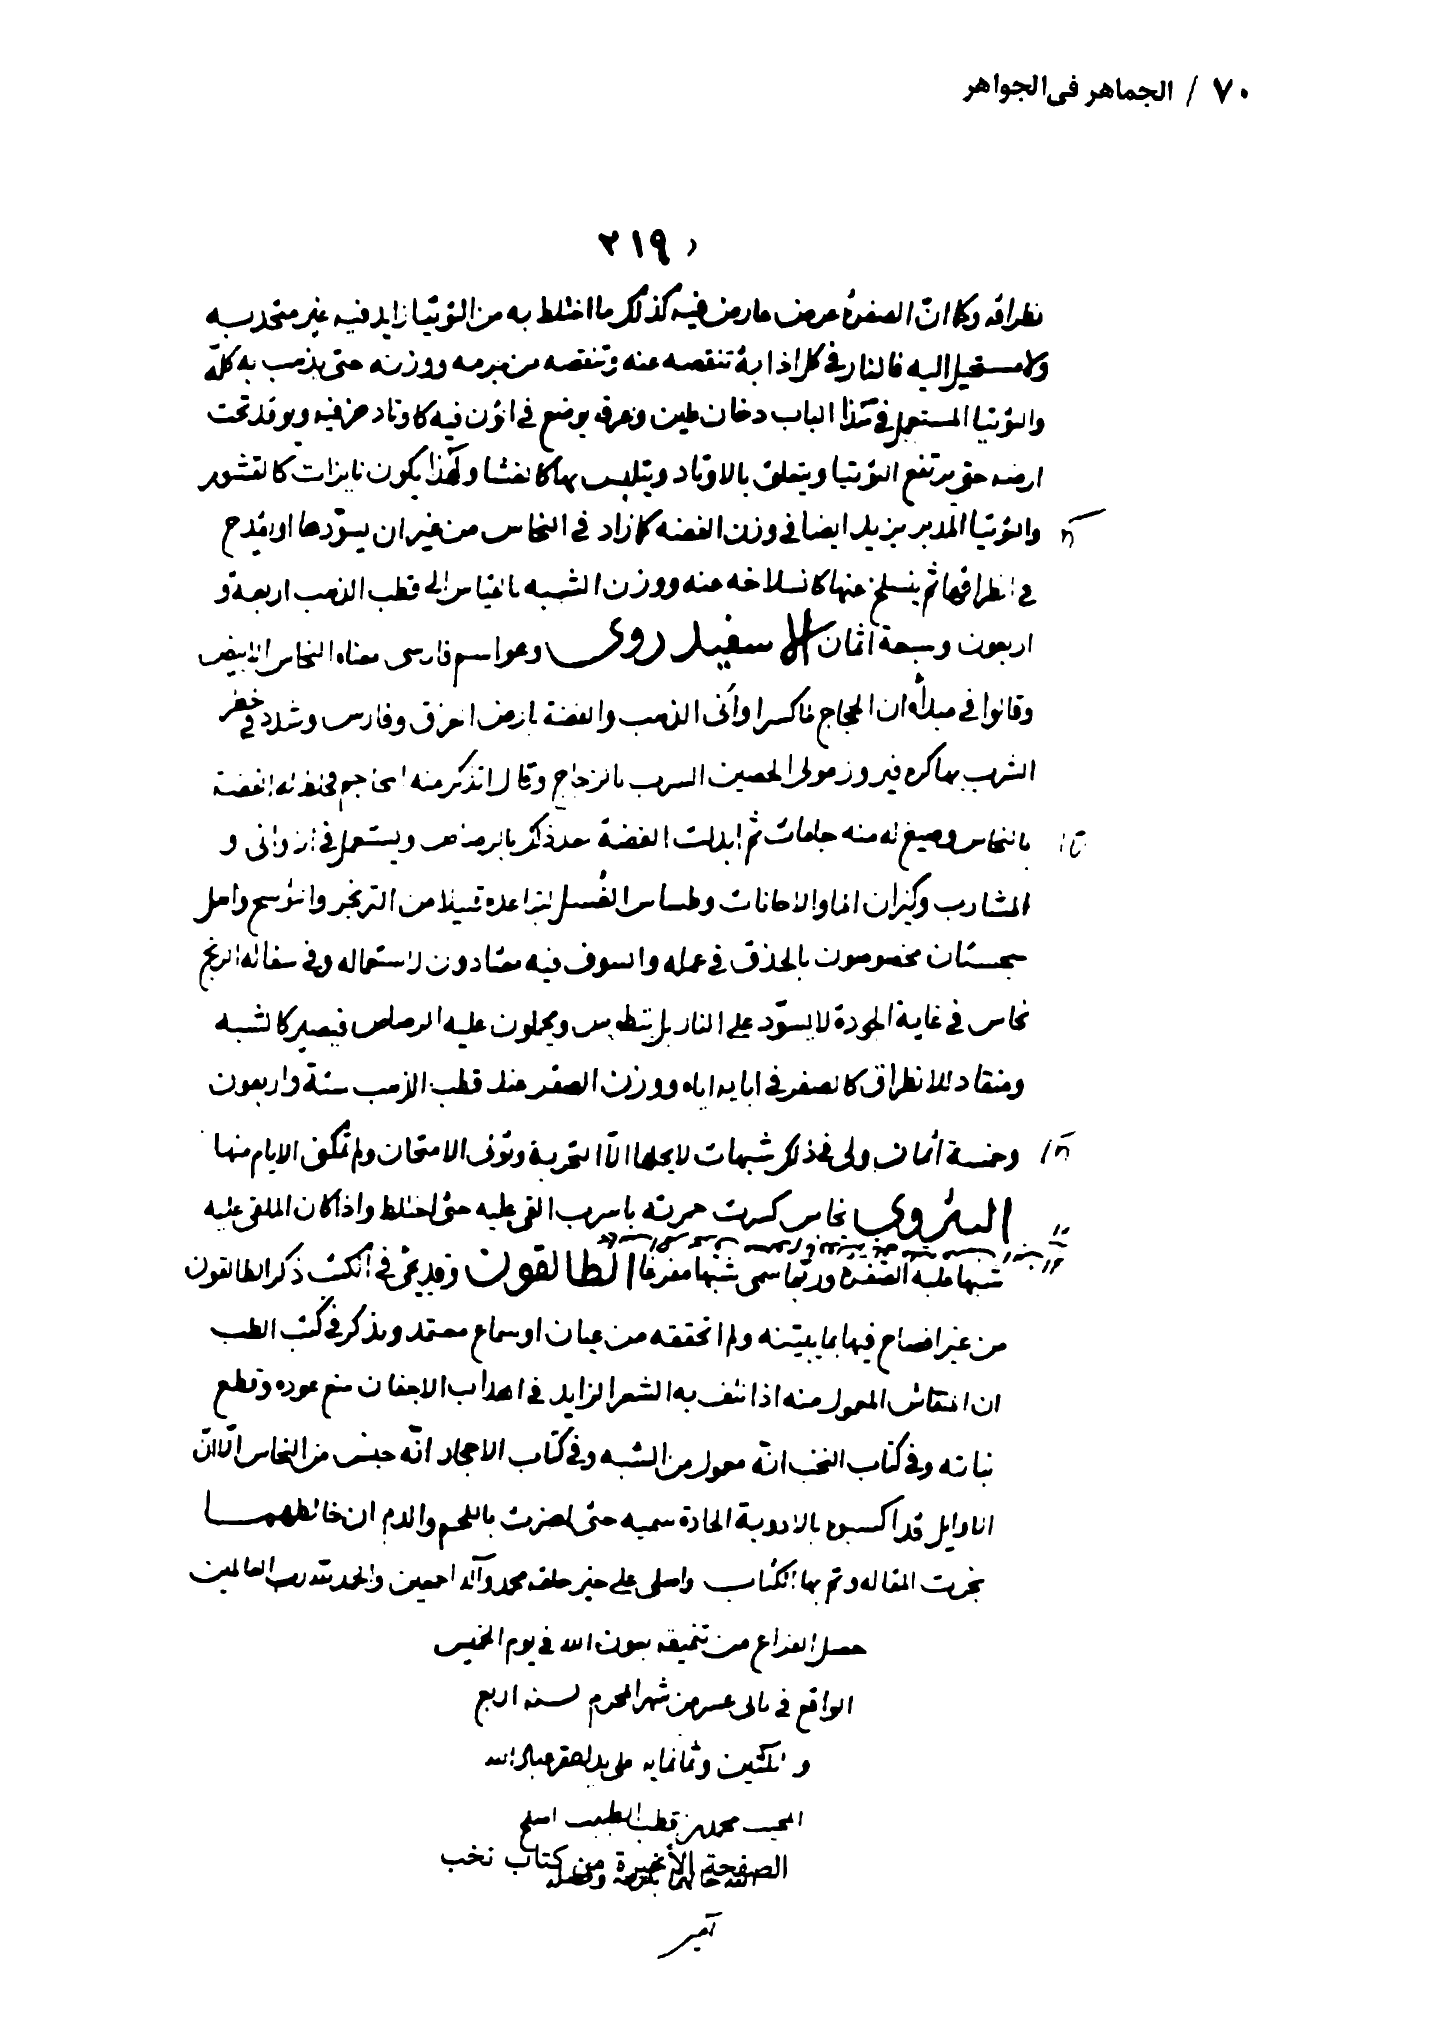 ٧٠ / الجماهر في الجواهر
٢١٩
نظراقه وكما انّ الصفرة عرض عارض فيه كذلك ما اختلط به من التوتيا زايد فيه غير متحد به
ولا مستحيل اليه فالنار في كل اذابة تنقصه عنه وتنقصه من جرمه ووزنه حتى يذهب به كلّه
والتوتيا المستعمل في هذا الباب دخان طين وعرف يوضع في اتون فيه كاوتاد خزفيه ويوقد تحت
ارضه حتى يرتفع التوتيا ويتعلق بالاوتاد ويتلبس بها كالغشا ولهذا يكون نايزات كالقشور
والتوتيا المدبر يزيد ايضا في وزن الفضه كما زاد في النحاس من غير ان يسوّدها او يقدح
في انطراقها ثم ينسلخ عنها كانسلاخه عنه ووزن الشبه بالقياس الى قطب الذهب اربعة و
اربعون وسبعة اثمان الاسفيد روى وهو اسم فارسى معناه النحاس الابيض
وقالوا في مبدأه ان الحجاج لما كسر اوانى الذهب والفضة بارض العراق وفارس وشدد في حظر
الشرب بها كره فيروز مولى الحصين الشرب بالزجاج وقال اتذكر منه المحاجم فخلط له الفضة
بالنحاس وصيغ له منه جامات ثم ابدلت الفضة بالرصاص ويستعمل في الاوانى و
المشارب وكيزان الما والاجانات وطساس الغسل من التزنجر والتوسخ واهل
سجستان مخصوصون بالحذق في عمله والسوف فيه معتادون لاستعماله وفي سفاله الزنج
نحاس في غاية الجودة لا يسوّد على النار بل يتطوس ويحملون عليه الرصاص فيصير كالشبه
ومنقاد للانطراق كالصفر في ابايه اياه ووزن الصفر عند قطب الذهب ستة واربعون
وخمسة أثمان ولى في ذلك شبهات لا يجلها الّا التجربة وتولى الامتحان ولم تمكن الايام منها
البتروى نحاس كسرت حمرته باسرب القى عليه حتى اختلط واذا كان الملقى عليه
شبها غلبه الصفرة وربما سمى شبها مفرغا الطالقون وقد يجئ في الكتب ذكر الطالقون
من غير افصاح فيها بما يبيّنه ولم اتحققه من عيان او سماع معتمد ويذكر في كتب الطب
ان المنقاش المعمول منه اذا نتف به الشعر الزايد في اهداب الاجفان منع عوده وقطع
نباته وفي كتاب النخب انّه معمول من الشبه وفي كتاب الاحجار انّه جنس من النحاس الّا انّ
الاوايل قد اكسبوه بالادوية الحادة سميه حتى اضرت باللحم والدم ان خالطهمـا
نجزت المقاله وتم بها الكتاب واصلى على خير خلقه محمد وآله اجمعين والحمد لله رب العالمين
حصل الفراغ من تنميقه بعون الله في يوم الخميس
الواقع في عشر من شهر المحرم لسنه اربع
و ثلثين وثمانمايه على يد عبد الله
محمد بن قطب الطبيب اصلح
الله حالهما بكرمه وفضله
الصفحة الأخيرة من كتاب نخب